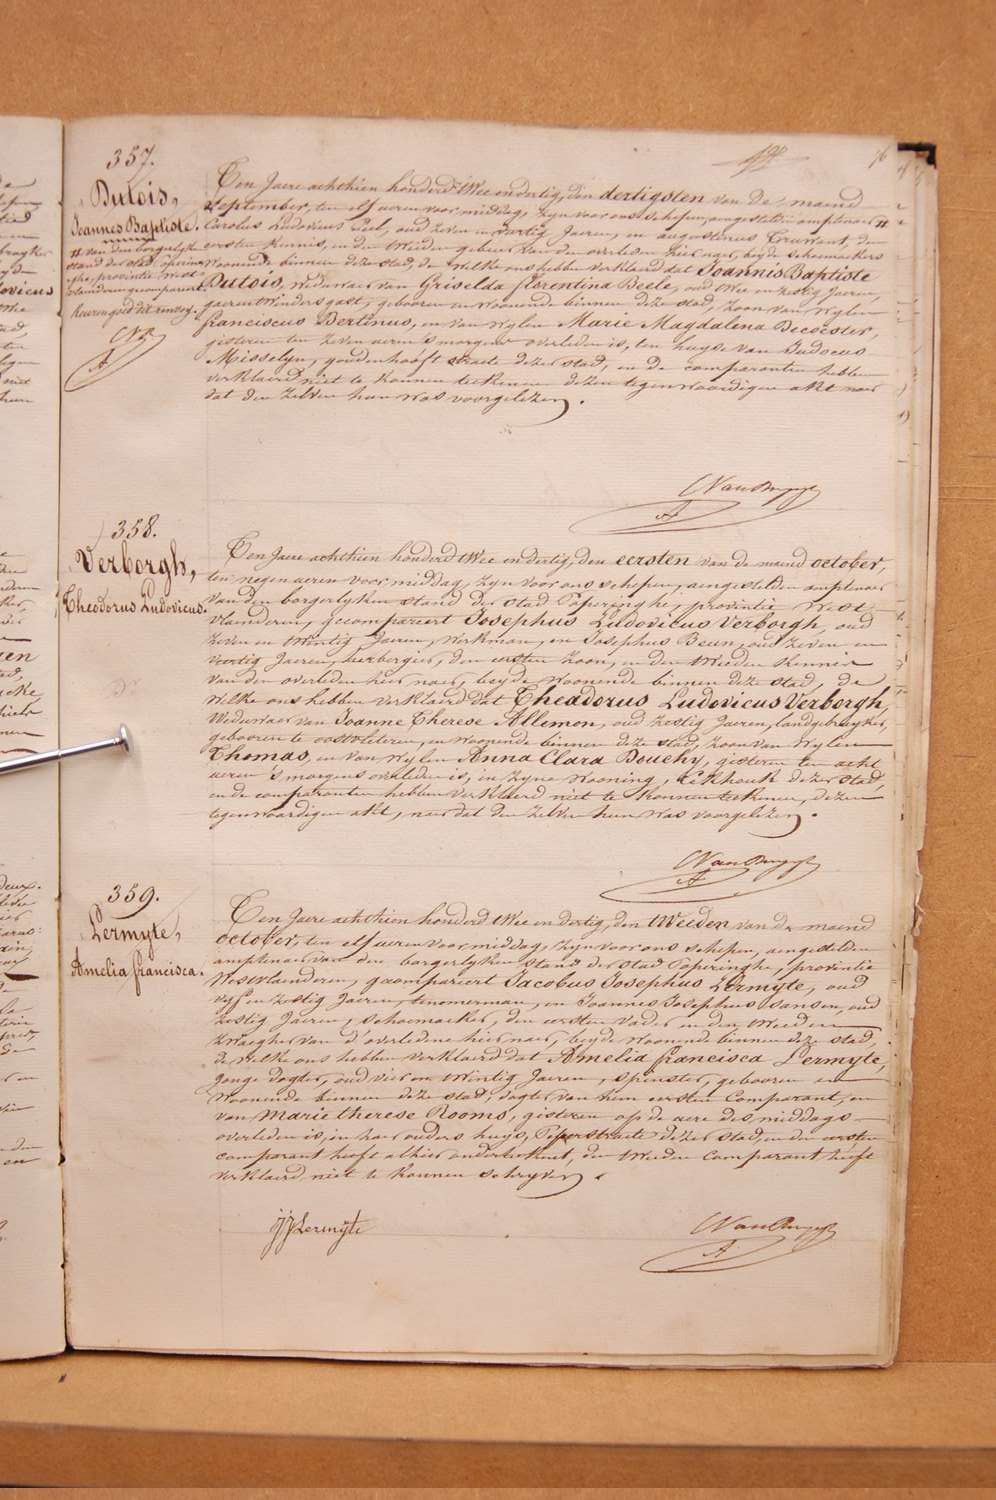 76
357.
Dutois,
Joannes Baptiste.
# van den borgerlyke
stand der stad Poperin
ghe, provintie West
vlaenderen gecompareert
keuren goed dit renvoy.
Ten Jaere achthien honderd twee en dertig, den dertigsten van de maend
September, ten elf ueren voor middag, zyn voor ons schepen, aengestelden amptenaer #
Carolus Ludovicus Peel, oud zeven en vartig Jaeren, en augustinus Cruwant, den
eersten kennis, en den tweeden gebuer van den overleden hier naer, beyde schoemaekers
woonende binnen deze stad, de welke ons hebben verklaerd dat Joannis Baptiste
Dutois, weduwaer van Griselda florentina Beele, oud twee en zestig Jaeren,
gaerentwindersgast, gebooren en woonende binnen deze stad, zoon van wylen
franciscus Bertinus, en van wylen Marie Magdalena Decoester,
gisteren ten zeven ueren s'morgens overleden is, ten huyse van Judocus
Misselyn, goudenhooft straete dezer stad, en de comparanten hebben
verklaerd niet te konnen teekenen dezen tegenwoordigen akt naer
dat den zelven hun was voorgelezen.
358.
Verborgh,
Theodorus Ludovicus.
Ten Jaere achthien honderd twee en dertig, den eersten van de maend october,
ten negen ueren voor middag, zyn voor ons schepen, aengestelden amptenaer
van den borgerlyken stand der stad Poperinghe, provintie West-
vlaenderen, gecompareert Josephus Ludovicus Verborgh, oud
zeven en twintig Jaeren, werkman, en Josephus Beun, oud zeven en
veertig Jaeren, herbergier, den eersten zoon, en den tweeden kennis
van den overleden hier naer, beyde woonende binnen deze stad, de
welke ons hebben verklaerd dat Theadorus Ludovicus Verborgh,
Weduwaer van Joanne Therese Allemon, oud zestig Jaeren, landgebruyker,
gebooren te oostvleteren, en woonende binnen deze stad, zoon van wylen
Thomas, en van wylen Anna Clara Bouchy, gisteren ten acht
ueren s'morgens overleden is, in zyne wooning, Eekhoek dezer stad,
en de comparanten hebben verklaerd niet te konnen teekenen, dezen
tegenwoordigen akt, naer dat den zelven hun was voorgelezen.
359.
Lermyte,
Amelia francisca.
Ten Jaere achthien honderd twee en dertig, den tweeden van de maend
october, ten elf ueren voor middag, zyn voor ons schepen, aengestelden
amptenaer van den borgerlyken stand der stad Poperinghe, provintie
Westvlaenderen, gecompareert Jacobus Josephus Lermyte, oud
vyf en zestig Jaeren, timmerman, en Joannes Josephus Sansen, oud
zestig Jaeren, schoemaeker, den eersten vader en den tweeden
zwaegher van d'overledene hier naer, beyde woonende binnen deze stad,
de welke ons hebben verklaerd dat Amelia francisca Lermyte,
Jonge dogter, oud vier en twintig Jaeren, spinster, gebooren en
woonende binnen deze stad, dogter van hem eersten Comparant, en
van Marie therese Rooms, gisteren op de uere des middags
overleden is, in haer ouders huys, Peperstraete dezer stad, en den eersten
comparant heeft alhier onderteekent, den tweeden Comparant heeft
verklaerd niet te konnen schryven.
JJ Lermyte